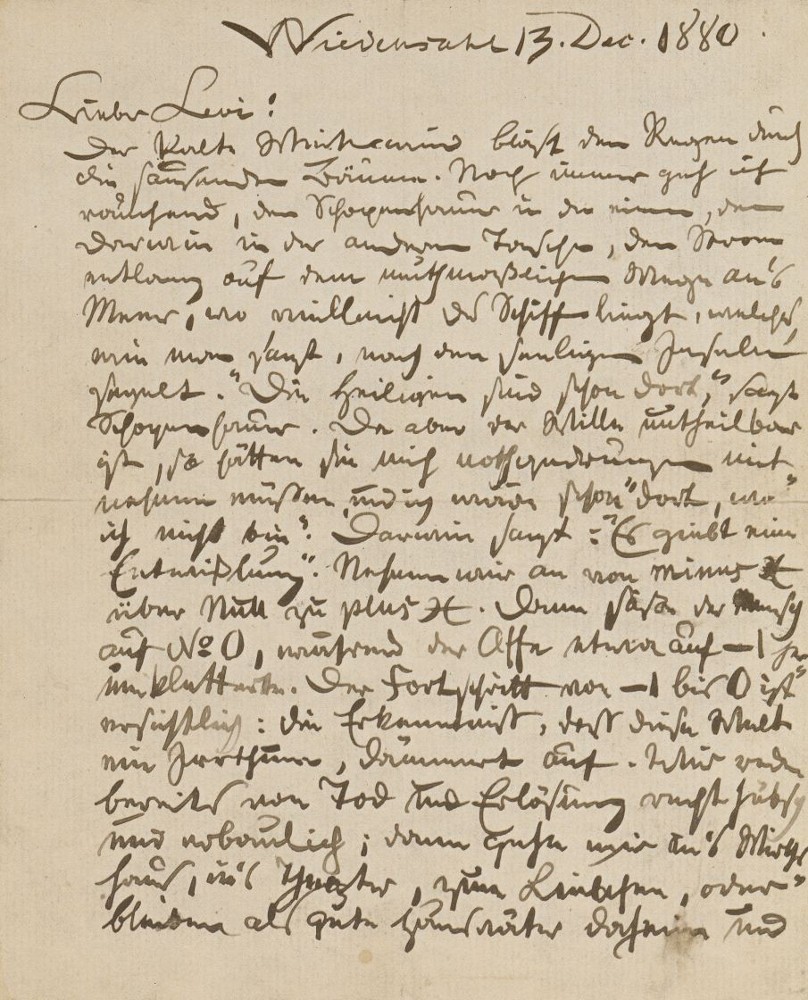 Wiedensahl 13. Dec. 1880.
Lieber Levi!
Der kalte Winterwind bläst den Regen durch
die sausenden Bäume. Noch immer geh ich
rauchend, den Schopenhauer in der einen, den
Darwin in der anderen Tasche, den Strom
entlang auf dem muthmaßlichen Wege an's
Meer, wo vielleicht das Schiff liegt, welches,
wie man sagt, nach den seeligen Inseln
segelt. "Die Heiligen sind schon dort," sagt
Schopenhauer. Da aber der Wille untheilbar
ist, so hätten sie mich nothgedrungen mit
nehmen müssen, und ich wäre schon "dort, wo
ich nicht bin". Darwin sagt: "Es giebt eine
Entwicklung". Nehmen wir an von minus X
über Null zu plus X. Dann säße der Mensch
auf No 0, während der Affe etwa auf —1 he
rumkletterte. Der Fortschritt von —1 bis 0 ist
ersichtlich: die Erkenntniß, daß diese Welt
ein Irrthum, dämmert auf. Wir reden
bereits von Tod und Erlösung recht hübsch
und erbaulich; dann gehn wir in's Wirths
haus, in's Theater, zum Liebchen, oder
bleiben als gute Hausväter daheim und